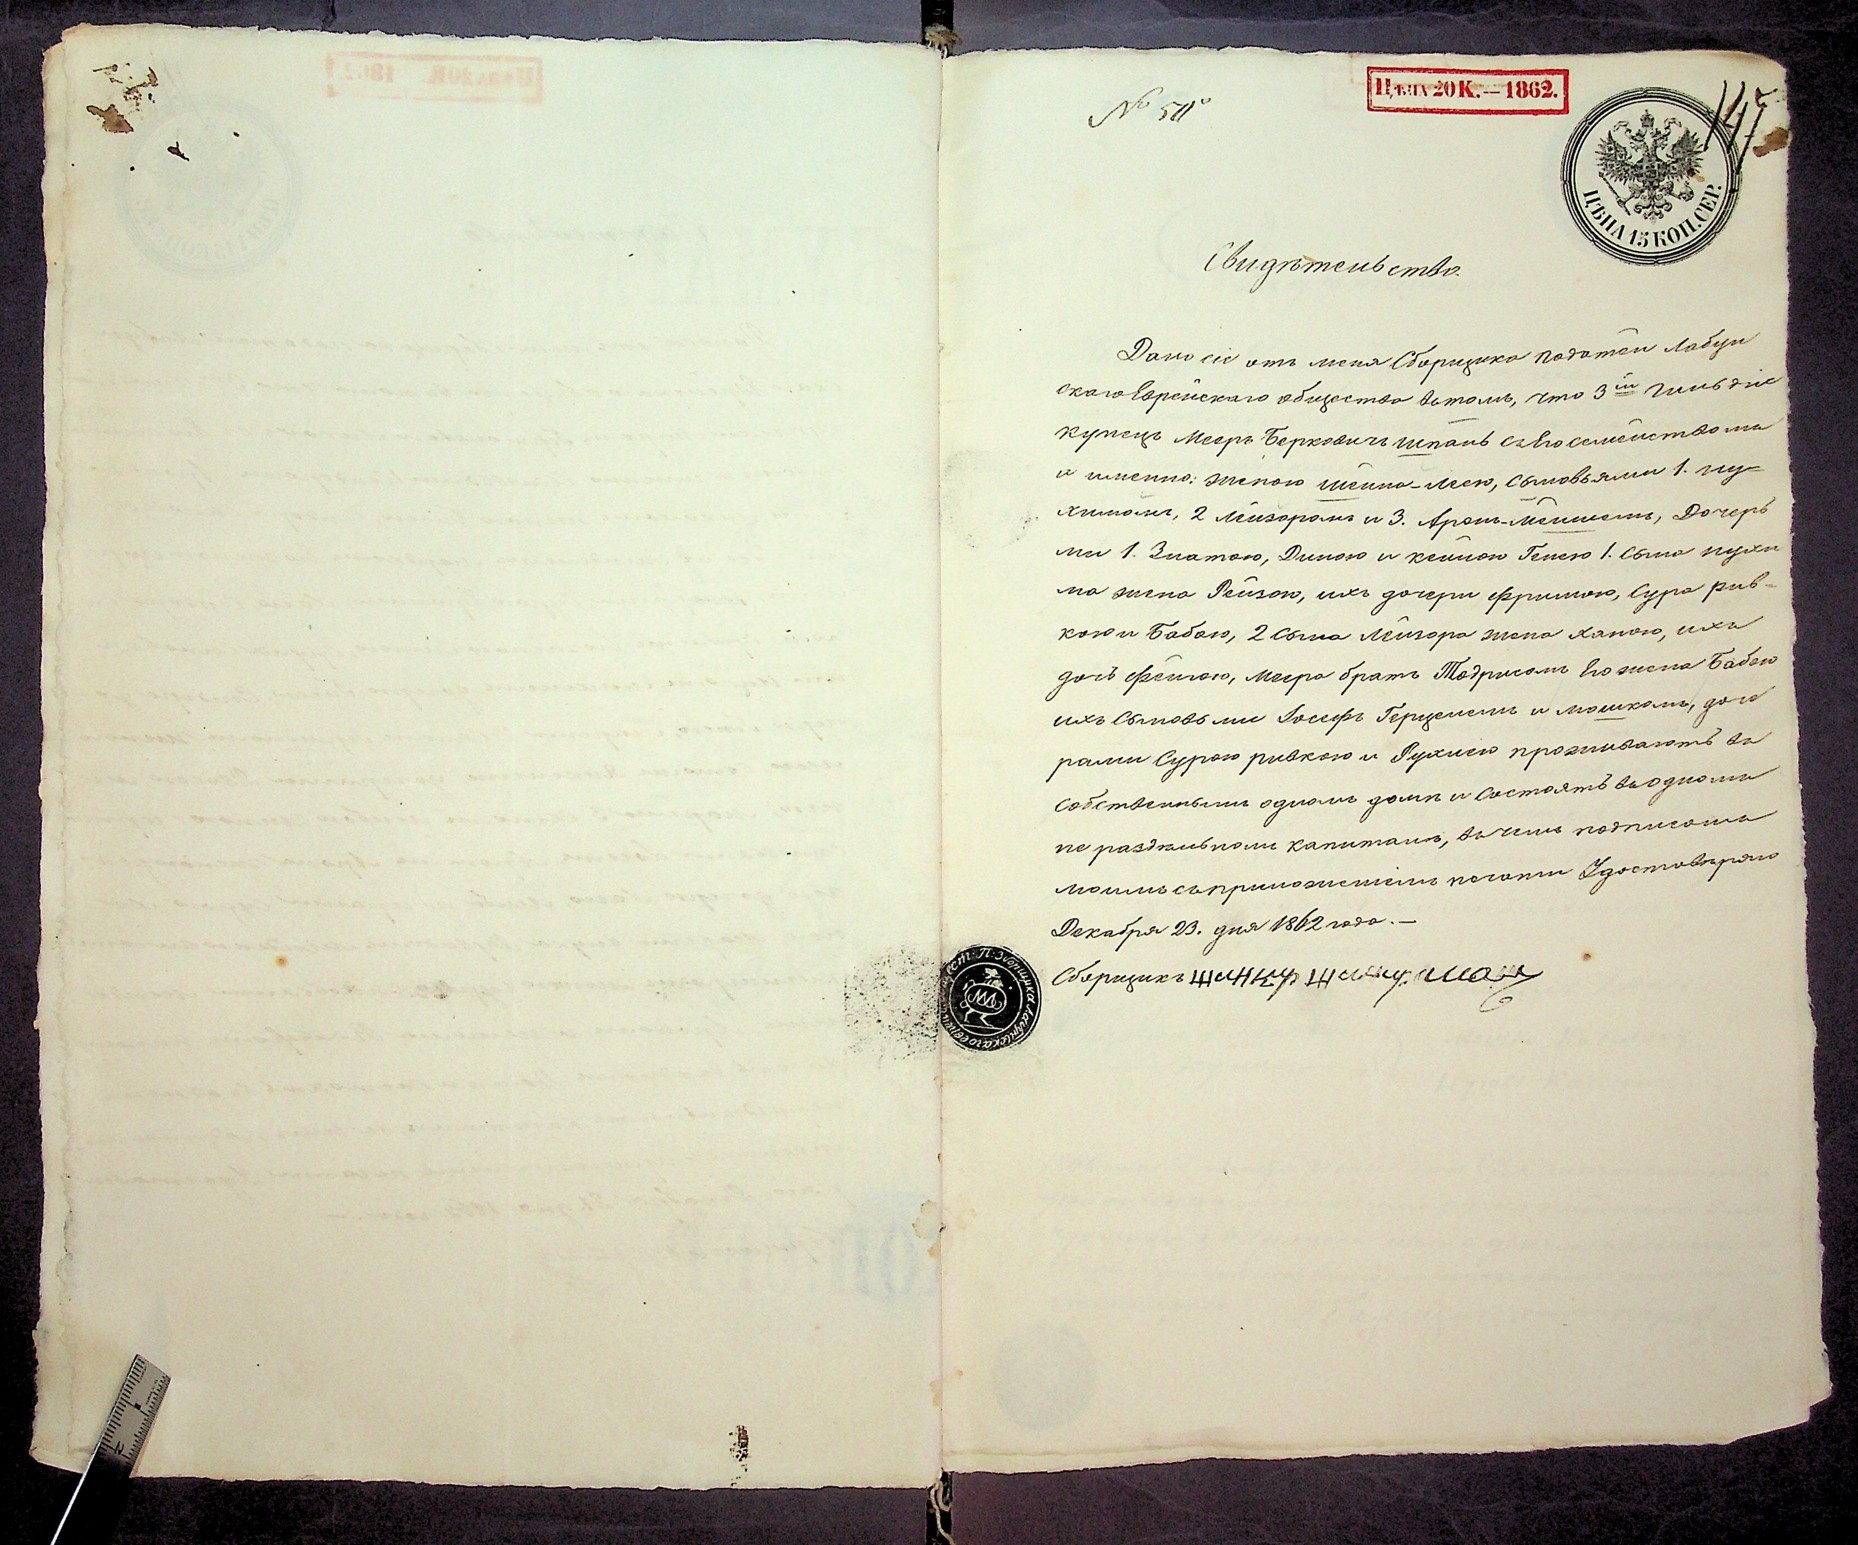 № 511
Цѣна 20 К. — 1862.
147
ЦѢНА 15 КОП. СЕР.
Свидѣтельство.
Дано сіе отъ меня Сборщика податей Лабун
скаго Еврейскаго общества въ томъ, что 3ій гильдіи
купецъ Мееръ Берковичъ Шпанъ съ его семействомъ
и именно: женою Шейна-Леею, сыновьями 1. Ну-
химомъ, 2 Лейзоромъ и 3. Аронъ-Мейшемъ, Дочерь
ми 1. Златою, Диною и Генею 1. сына Нухи
ма жена Рейзою, ихъ дочери Фримою, Сура рив-
кою и Бабою, 2 сына Лейзора жена Ханою, ихъ
дочь Фейгою, Меера братъ Тодрисомъ Его жена Бабою
ихъ Сыновьми Іосефъ Герцемъ и Мошкомъ, доче
рами Сурою ривкою и Рухлею проживаютъ въ
собственнымъ одномъ домѣ и состоятъ въ одномъ
не раздѣльномъ капиталѣ, въ чемъ подписомъ
моимъ съ приложеніемъ печати Удостовѣряю
Декабря 23. дня 1862 года. —
Сборщикъ